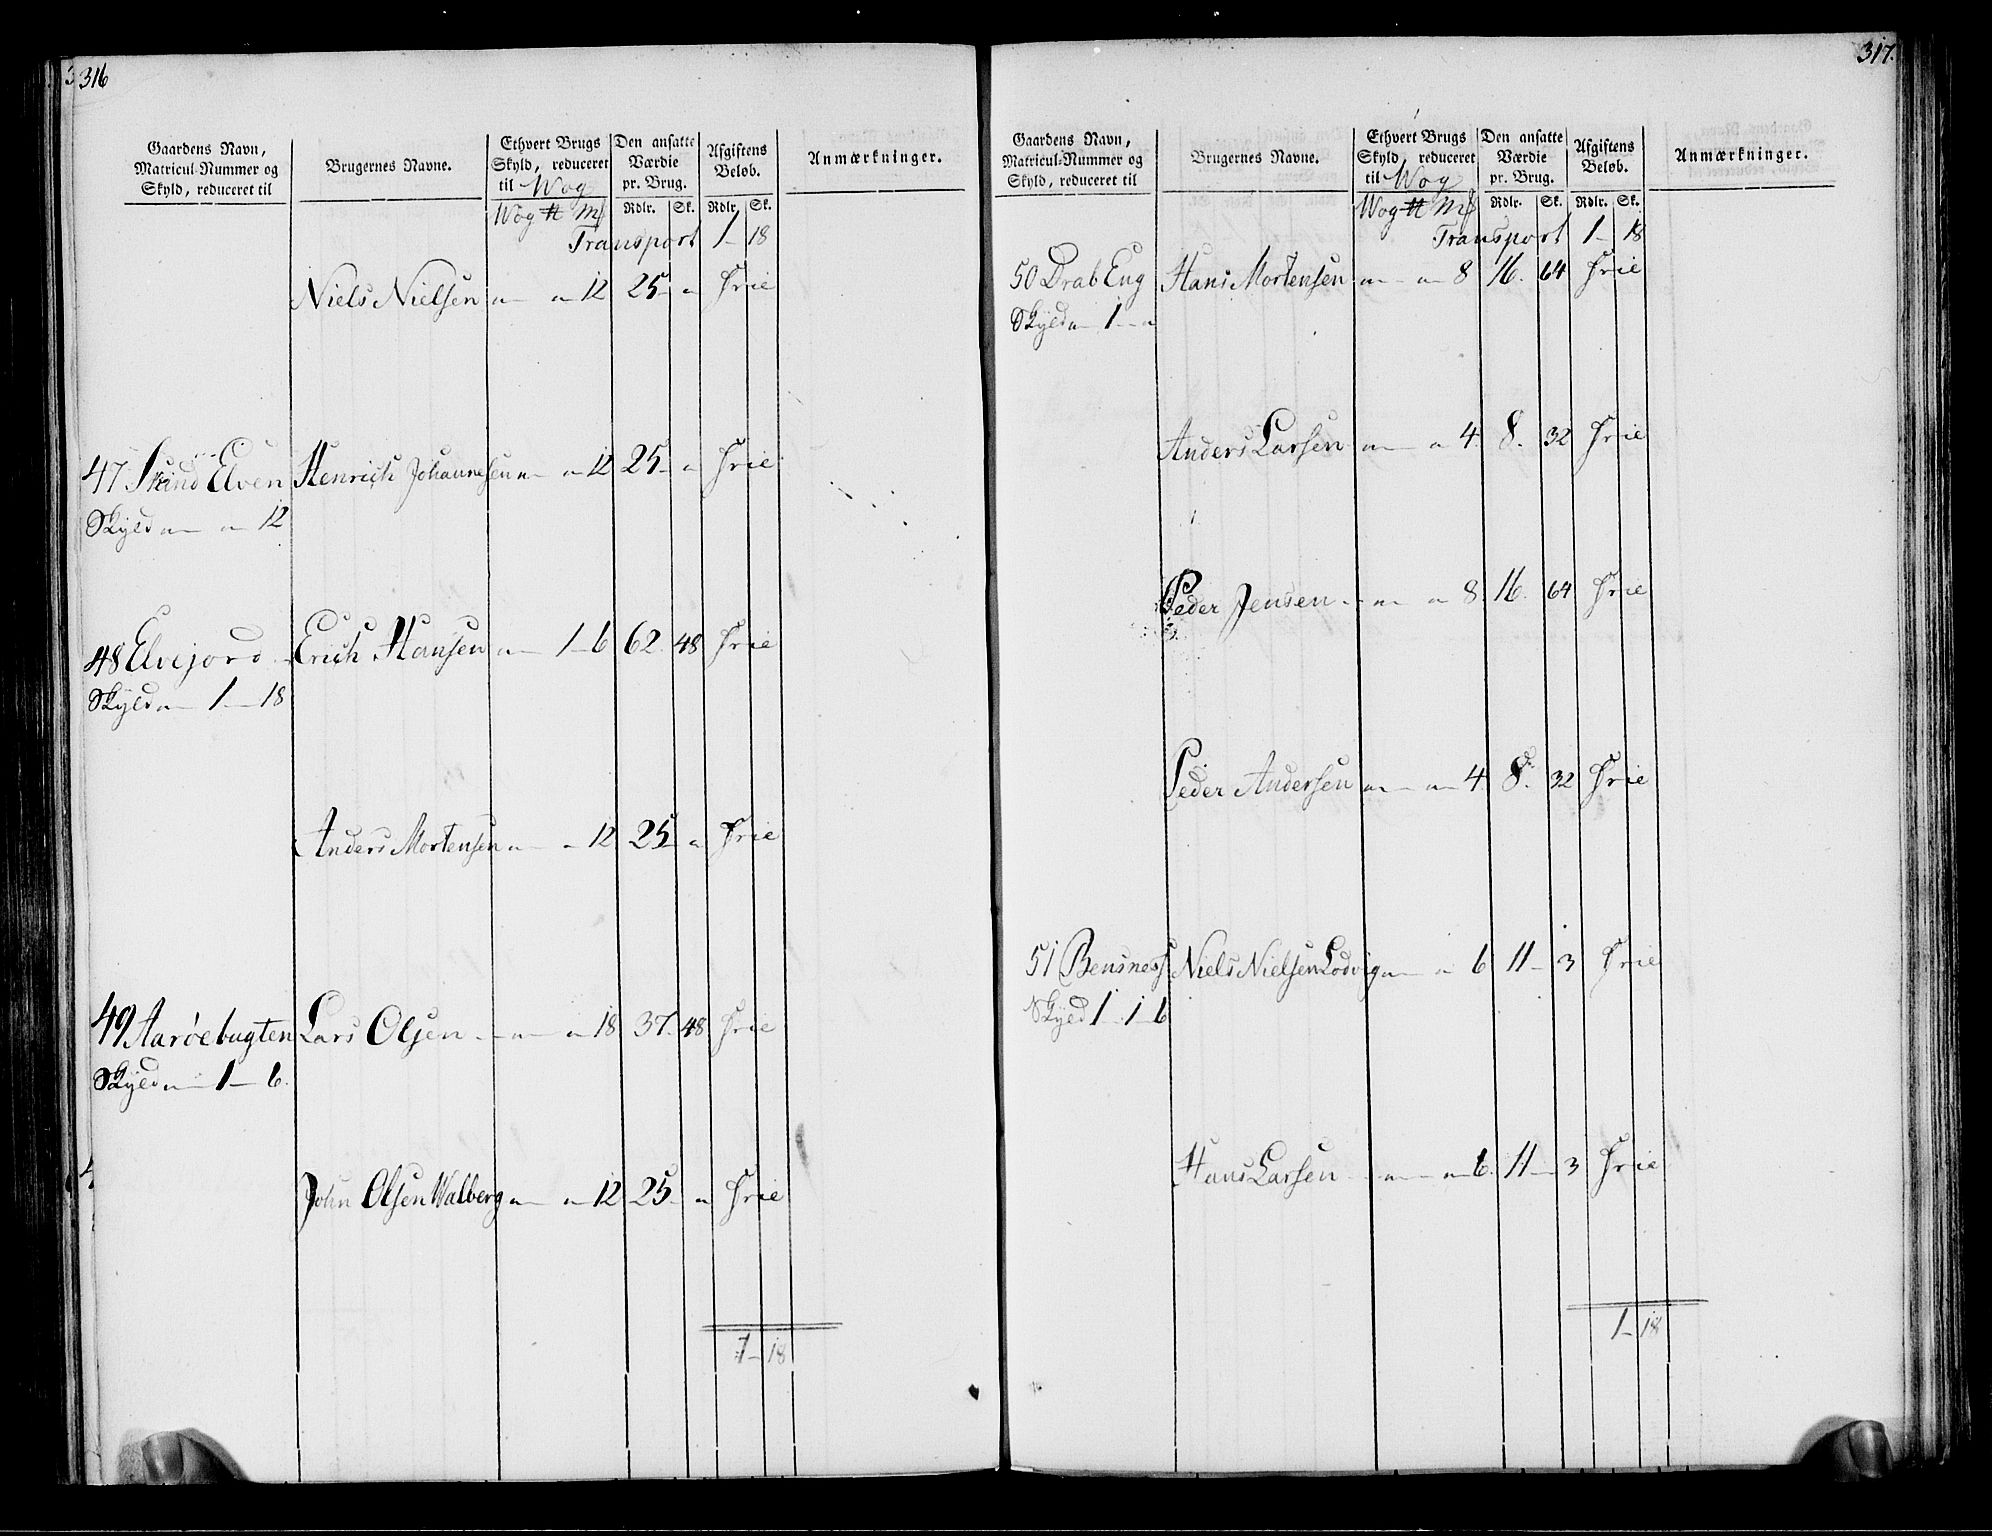 316
Gaardens Navn, Matricul-Nummer og Skyld, reduceret til
Brugernes Navne.
Ethvert Brugs Skyld, reduceret til Wog
Den ansatte Værdie pr. Brug.
Afgiftens Beløb.
Anmærkninger.
Wog ℔ Mk Rdlr. Sk. Rdlr. Sk.
Transport 1 - 18
Niels Nielsen " - " 12 25 - " Frie
47 Skind Elven Henrich Johannesen " - " 12 25 - " Frie
Skyld " - " - 12
48 Elvejord Erich Hansen " - 1 - 6 62. 48 Frie
Skyld " - 1 - 18
Anders Mortensen " - " 12 25 - " Frie
49 Aarøebugten Lars Olsen " - " 18 37. 48 Frie
Skyld " - 1 - 6.
John Olsen Walberg " - " 12 25 - " Frie
1 - 18
317.
Gaardens Navn, Matricul-Nummer og Skyld, reduceret til
Brugernes Navne.
Ethvert Brugs Skyld, reduceret til Wog
Den ansatte Værdie pr. Brug.
Afgiftens Beløb.
Anmærkninger.
Wog ℔ Mk Rdlr. Sk. Rdlr. Sk.
Transport 1 - 18
50 Drab Eng Hans Mortensen " - " - 8 16. 64 Frie
Skyld " - 1 - "
Anders Larsen " - " 4. 8. 32 Frie
Peder Jensen - " - " 8. 16. 64 Frie
Peder Andersen " - " - 4. 8. 32 Frie
51 Bensness Niels Nielsen Lodvig " - " 6 11 - 3 Frie
Skyld 1 - 1 - 6
Hans Larsen - " - " 6. 11 - 3 Frie
1 - 18